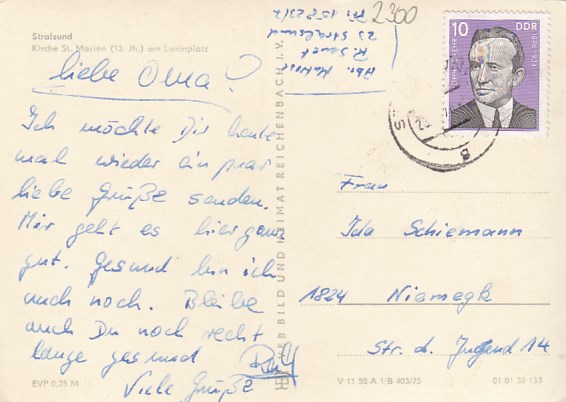 Stralsund
Kirche St. Marien (13. Jh.) am Leninplatz
liebe Oma!
Ich möchte Dir heute
mal wieder ein paar
liebe Grüße senden.
Mir geht es hier ganz
gut. Gesund bin ich
auch noch. Bleibe
auch Du noch recht
lange gesund Ralf
Viele Grüße
EVP 0,25 M
VEB BILD UND HEIMAT REICHENBACH I. V.
Abs. Matrose
R.
23 Stralsund
2300
10 DDR
Frau
Ida Schiemann
1824 Niemegk
Str. d. Jugend 14
V 11 50 A 1/B 403/75
01 01 32 133